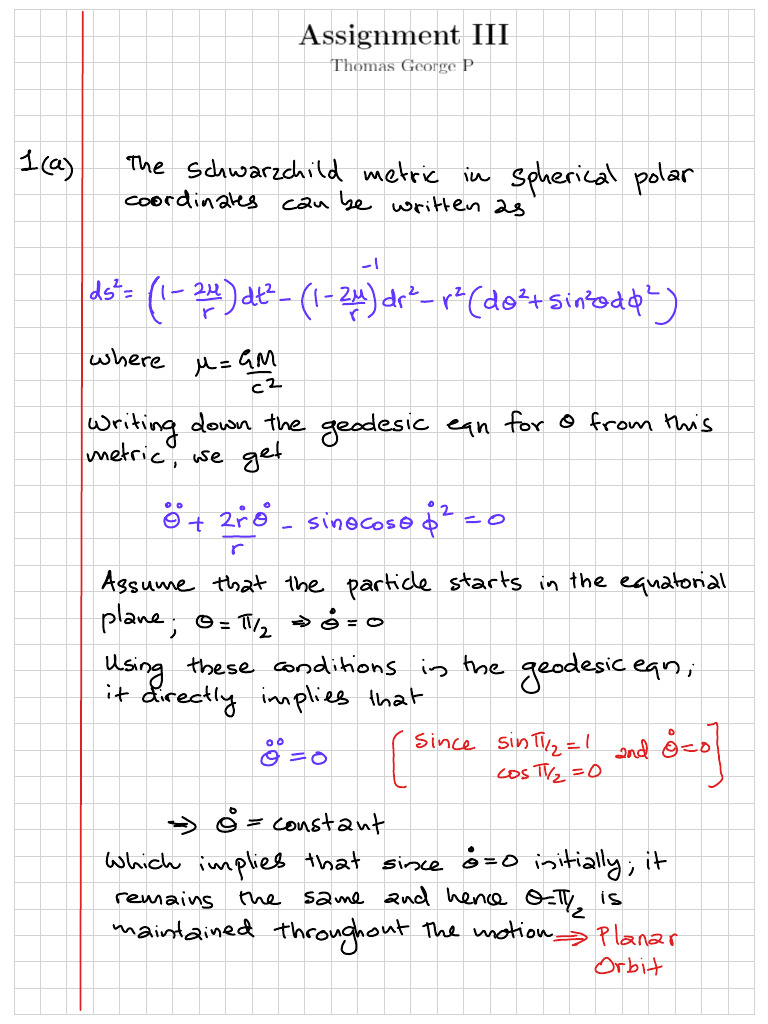 Assignment III
Thomas George P
1(a) The Schwarzchild metric in spherical polar
coordinates can be written as
ds² = (1 - 2μ/r) dt² - (1 - 2μ/r)⁻¹ dr² - r² (dθ² + sin²θdϕ²)
where μ = GM/c²
Writing down the geodesic eqn for θ from this
metric, we get
θ̈ + 2ṙθ̇/r - sinθcosθ ϕ̇² = 0
Assume that the particle starts in the equatorial
plane; θ = π/2 ⇒ θ̇ = 0
Using these conditions in the geodesic eqn,
it directly implies that
θ̈ = 0 [since sin π/2 = 1 and θ̇ = 0]
cos π/2 = 0
⇒ θ̇ = constant
Which implies that since θ̇ = 0 initially, it
remains the same and hence θ = π/2 is
maintained throughout the motion ⇒ Planar
Orbit